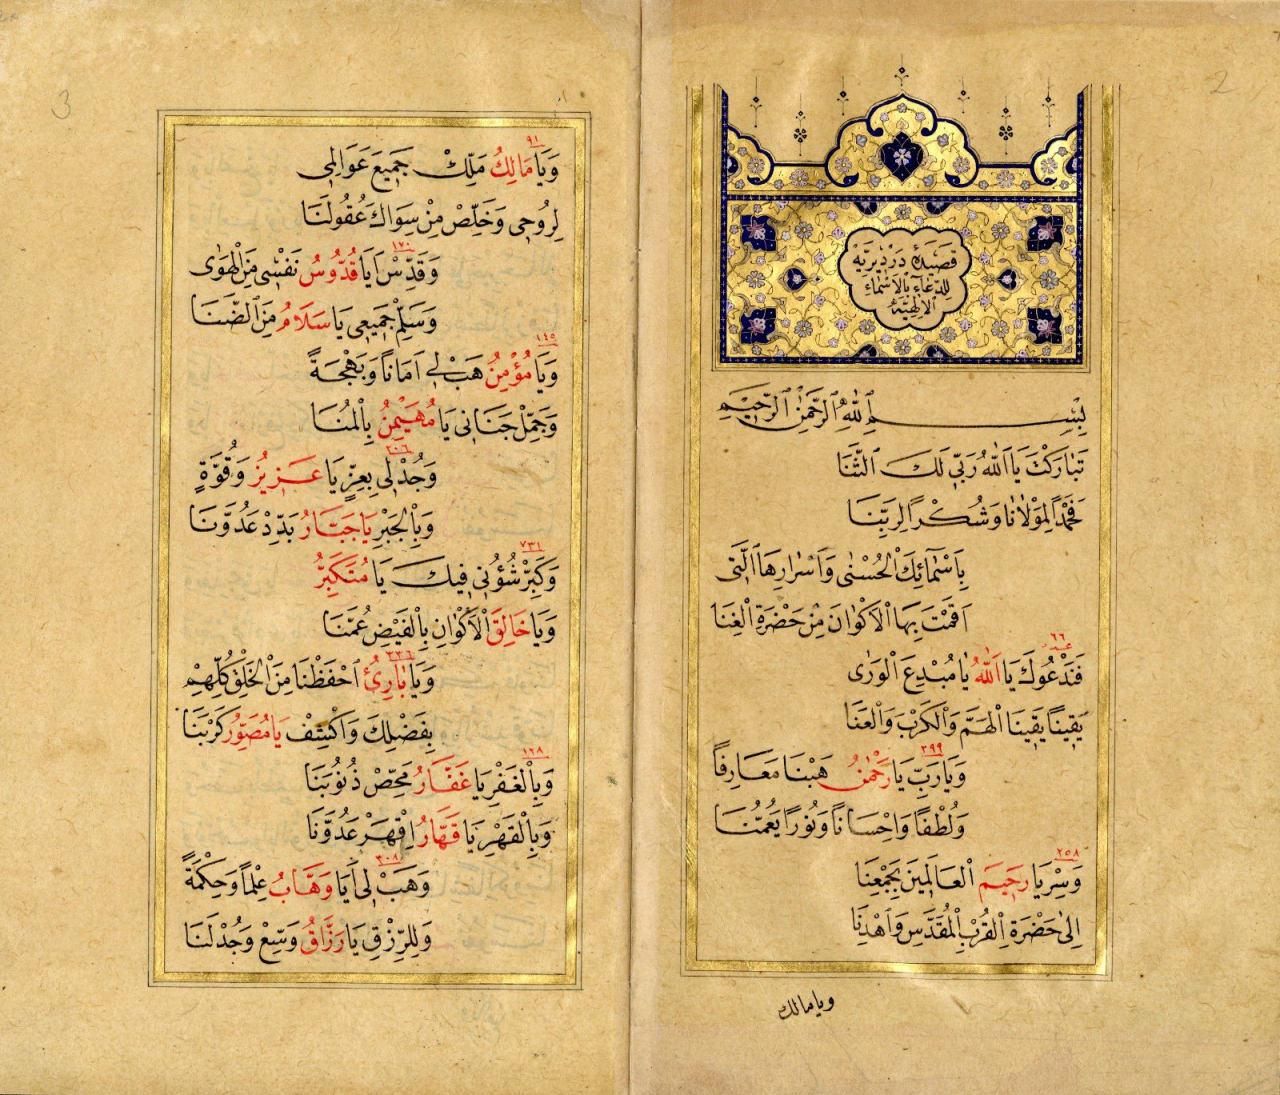 2
قصيدة دردیریه
للدعاء بالاسماء
الالهية
بِسْمِ اللهِ الرَّحْمٰنِ الرَّحِيمِ
تَبَارَكْتَ يَا اَللهُ رَبِّي لَكَ الثَّنَا
فَحَمْدًا لِمَوْلَانَا وَشُكْرًا لِرَبِّنَا
بِاَسْمَائِكَ الْحُسْنٰى وَاَسْرَارِهَا الَّتِى
اَقَمْتَ بِهَا الْاَكْوَانَ مِنْ حَضْرَةِ الْغِنَا
٦٦
فَنَدْعُوكَ يَا اَللهُ يَا مُبْدِعَ الْوَرٰى
يَقِينًا يَقِينَا الْهَمَّ وَالْكَرْبَ وَالْعَنَا
٢٩٩
وَيَا رَبِّ يَا رَحْمٰنُ هَبْنَا مَعَارِفًا
وَلُطْفًا وَاِحْسَانًا وَنُورًا يَعُمُّنَا
٢٥٨
وَسِرْ يَا رَحِيمَ الْعَالَمِينَ بِجَمْعِنَا
اِلٰى حَضْرَةِ الْقُرْبِ الْمُقَدَّسِ وَاهْدِنَا
ويا مالك
3
٩١
وَيَا مَالِكُ مَلِّكْ جَمِيعَ عَوَالِمِى
لِرُوحِى وَخَلِّصْ مِنْ سِوَاكَ عُقُولَنَا
١٧٠
وَقَدِّسْ اَيَا قُدُّوسُ نَفْسِى مِنَ الْهَوٰى
وَسَلِّمْ جَمِيعِى يَا سَلَامُ مِنَ الضَّنَا
١٤٥
وَيَا مُؤْمِنُ هَبْ لِى اَمَانًا وَبَهْجَةً
وَجَمِّلْ جَنَانِى يَا مُهَيْمِنُ بِالْمُنَا
٢٠٦
وَجُدْ لِى بِعِزٍّ يَا عَزِيزُ وَقُوَّةٍ
وَبِالْجَبْرِ يَا جَبَّارُ بَدِّدْ عَدُوَّنَا
٧٣١
وَكَبِّرْ شُؤُنِى فِيكَ يَا مُتَكَبِّرُ
وَيَا خَالِقَ الْاَكْوَانِ بِالْفَيْضِ عُمَّنَا
٣٣٦
وَيَا بَارِئُ احْفَظْنَا مِنَ الْخَلْقِ كُلِّهِمْ
بِفَضْلِكَ وَاكْشِفْ يَا مُصَوِّرُ كَرْبَنَا
١٢٨
وَبِالْغَفْرِ يَا غَفَّارُ مَحِّصْ ذُنُوبَنَا
وَبِالْقَهْرِ يَا قَهَّارُ اِقْهَرْ عَدُوَّنَا
٣٠٨
وَهَبْ لِى اَيَا وَهَّابُ عِلْمًا وَحِكْمَةً
وَلِلرِّزْقِ يَا رَزَّاقُ وَسِّعْ وَجُدْ لَنَا